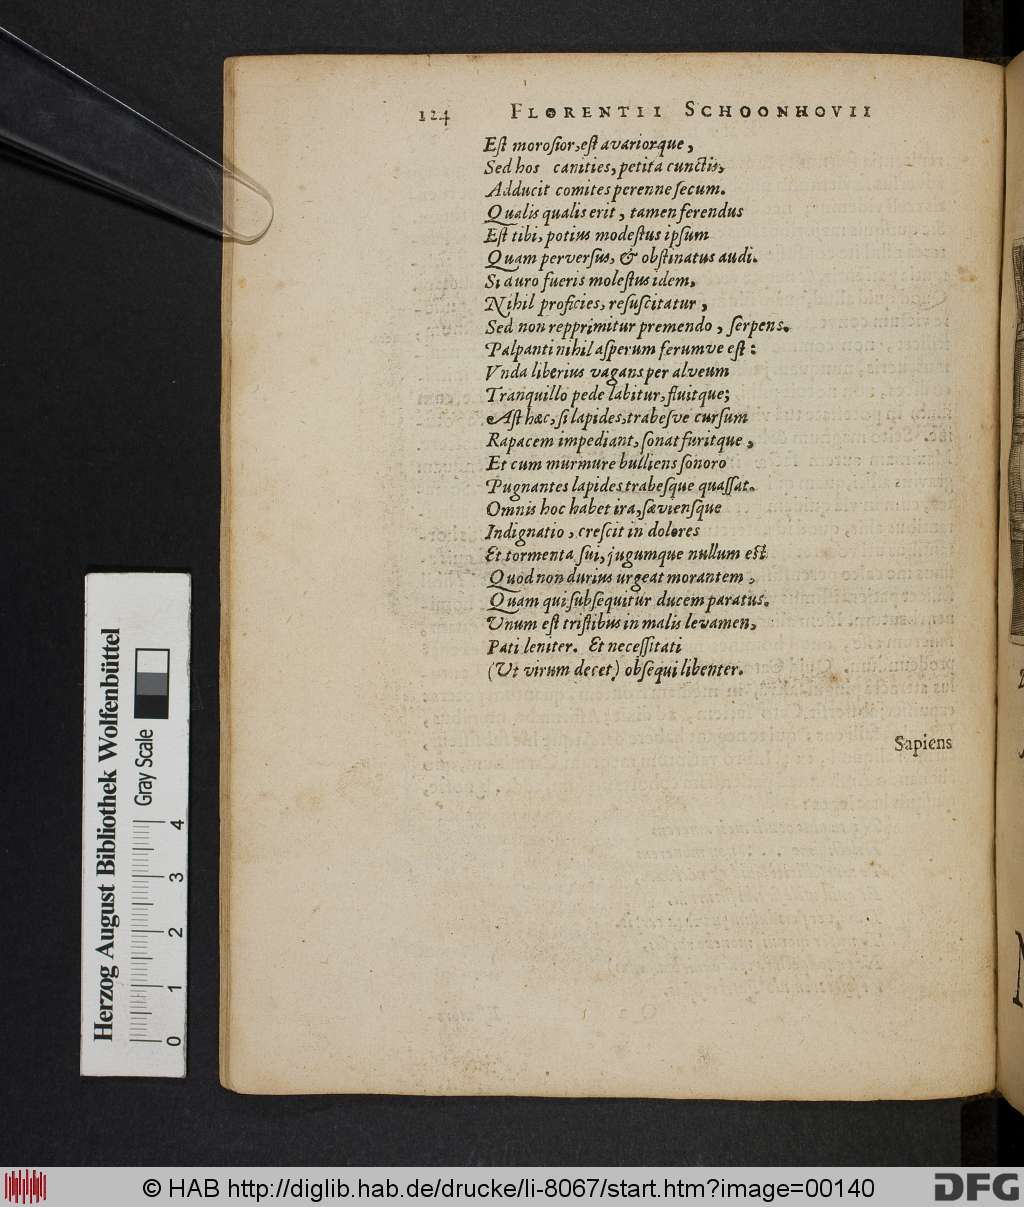 124 FLORENTII SCHOONHOVII
Est morosior, est avariorque,
Sed hos canities, petita cunctis,
Adducit comites perenne secum.
Qualis qualis erit, tamen ferendus
Est tibi, potius modestus ipsum
Quam perversus, & obstinatus audi.
Si auro fueris molestus idem,
Nihil proficies, resuscitatur,
Sed non repprimitur premendo, serpens.
Palpanti nihil asperum ferumve est:
Vnda liberius vagans per alveum
Tranquillo pede labitur, fluitque;
Ast hæc, si lapides, trabesve cursum
Rapacem impediant, sonat furitque,
Et cum murmure bulliens sonoro
Pugnantes lapides trabesque quassat.
Omnis hoc habet ira, sæviensque
Indignatio, crescit in dolores
Et tormenta sui, jugumque nullum est
Quod non durius urgeat morantem,
Quam qui subsequitur ducem paratus.
Unum est tristibus in malis levamen,
Pati leniter. Et necessitati
(Ut virum decet) obsequi libenter.
Sapiens
Herzog August Bibliothek Wolfenbüttel
Gray Scale
0 1 2 3 4
© HAB http://diglib.hab.de/drucke/li-8067/start.htm?image=00140
DFG